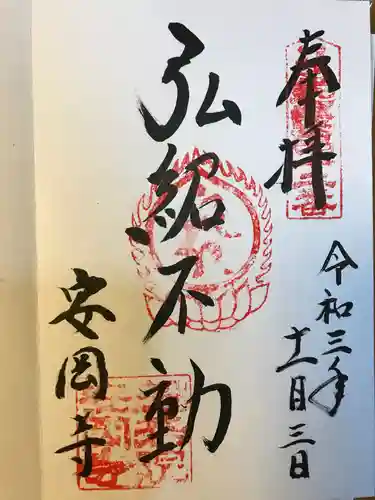 奉拝
令和三年
十一月三日
弘紹不動
安岡寺